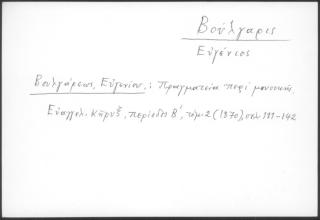 Βούλγαρις
Εὐγένιος
Βουλγάρεως, Εὐγενίου,: Πραγματεία περί μουσικής.
Εὐαγγελ. Κῆρυξ, περίοδος Β', τόμ. 2 (1870), σελ. 111-142